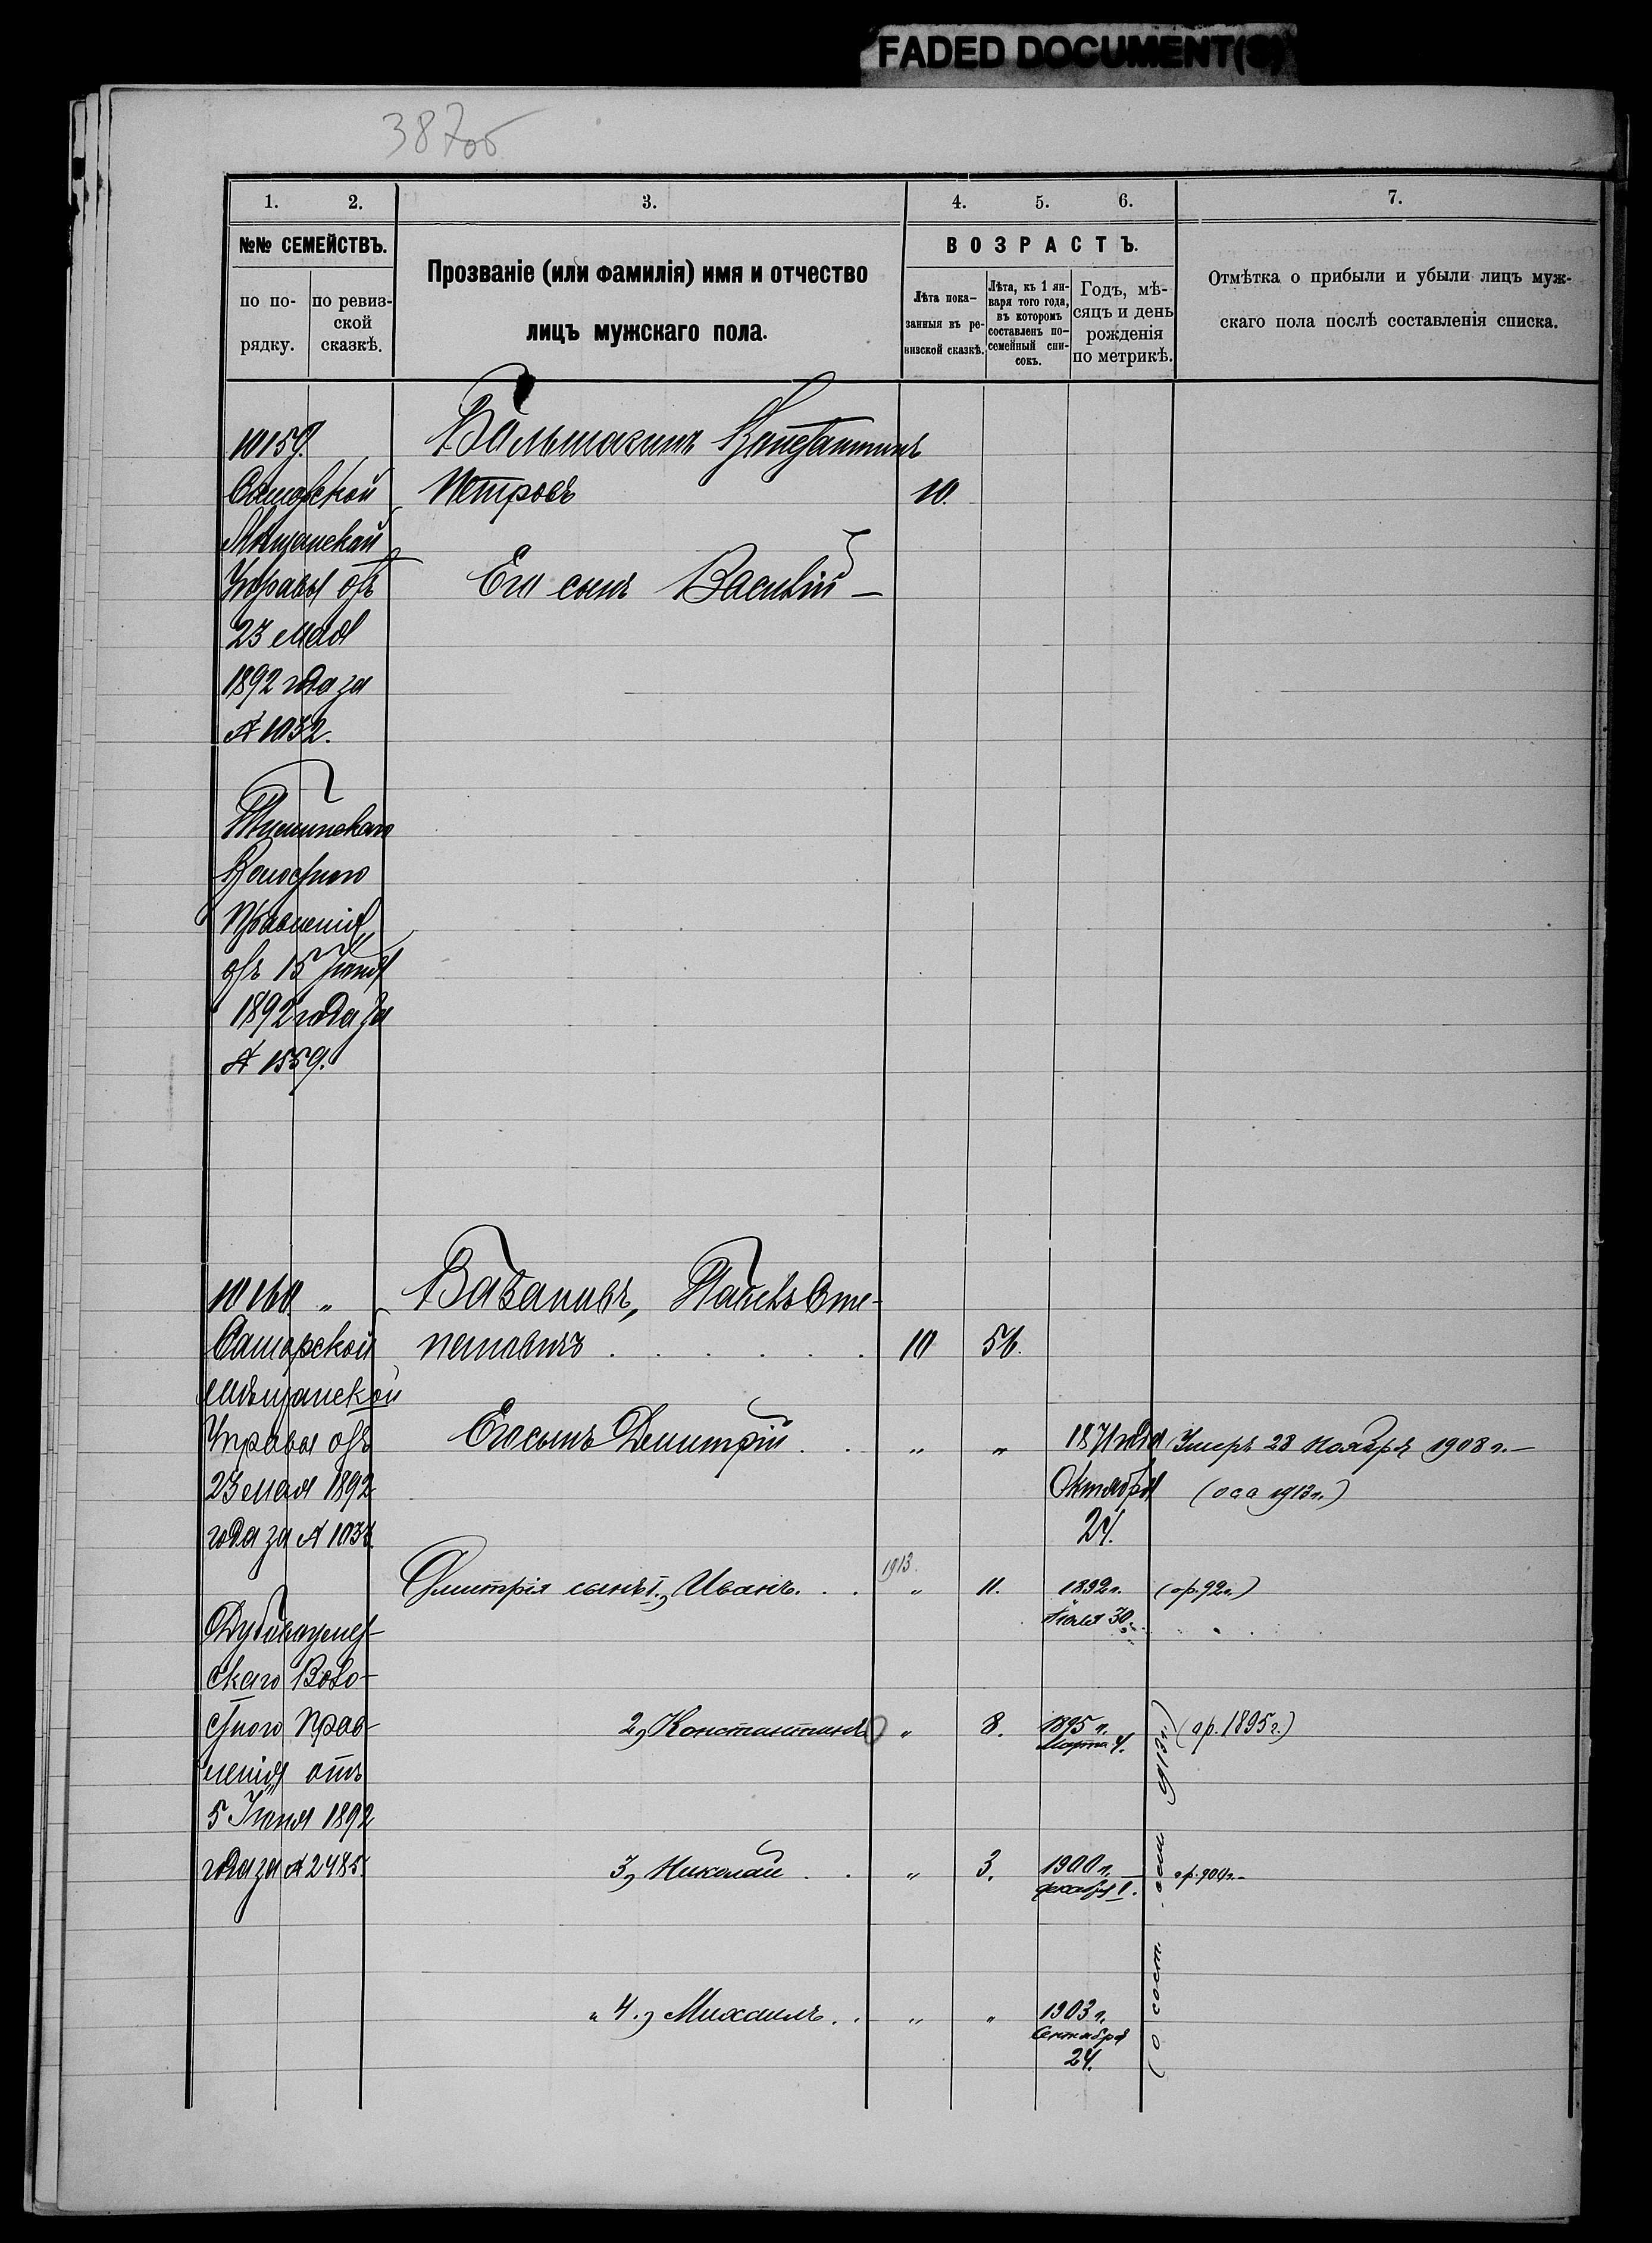 FADED DOCUMENT(S)
387об
1. 2. 3. 4. 5. 6. 7.
№№ СЕМЕЙСТВЪ.
по по-
рядку.
по ревиз-
ской
сказкѣ.
Прозваніе (или фамилія) имя и отчество
лицъ мужскаго пола.
ВОЗРАСТЪ.
Лѣта пока-
занныя въ ре-
визской сказкѣ.
Лѣта, къ 1 ян-
варя того года,
въ которомъ
составленъ по-
семейный спи-
сокъ.
Годъ, мѣ-
сяцъ и день
рожденія
по метрикѣ.
Отмѣтка о прибыли и убыли лицъ муж-
скаго пола послѣ составленія списка.
10159. Константинъ
Самарской Петровъ 10.
Мѣщанской
Управы отъ Его сынъ Василій —
23 мая
1892 года за
№ 1032.
Волостного
Правленія
отъ 15 Іюня
1892 года за
№ 1559.
10160 „
Самарской 10 56.
Мѣщанской
Управы отъ Его сынъ Дмитрій . . „ „ 1871 года Умеръ 28 ноября 1908 г. —
23 мая 1892 Октября
года за № 24.
Дмитрія сынъ 1, Иванъ. . . 1913. „ 11. 1892 г. (ар. 92 г.)
30.
скаго Воло-
стного Прав- 2, Константинъ „ 8. 1895 г. (ар. 1895 г.)
ленія отъ Марта 4.
5 Іюня 1892
года за № 2485 3, Николай . . „ 3. 1900 г.
декабря 1.
„ 4, Михаилъ . . „ „ 1903 г.
Сентября
24.